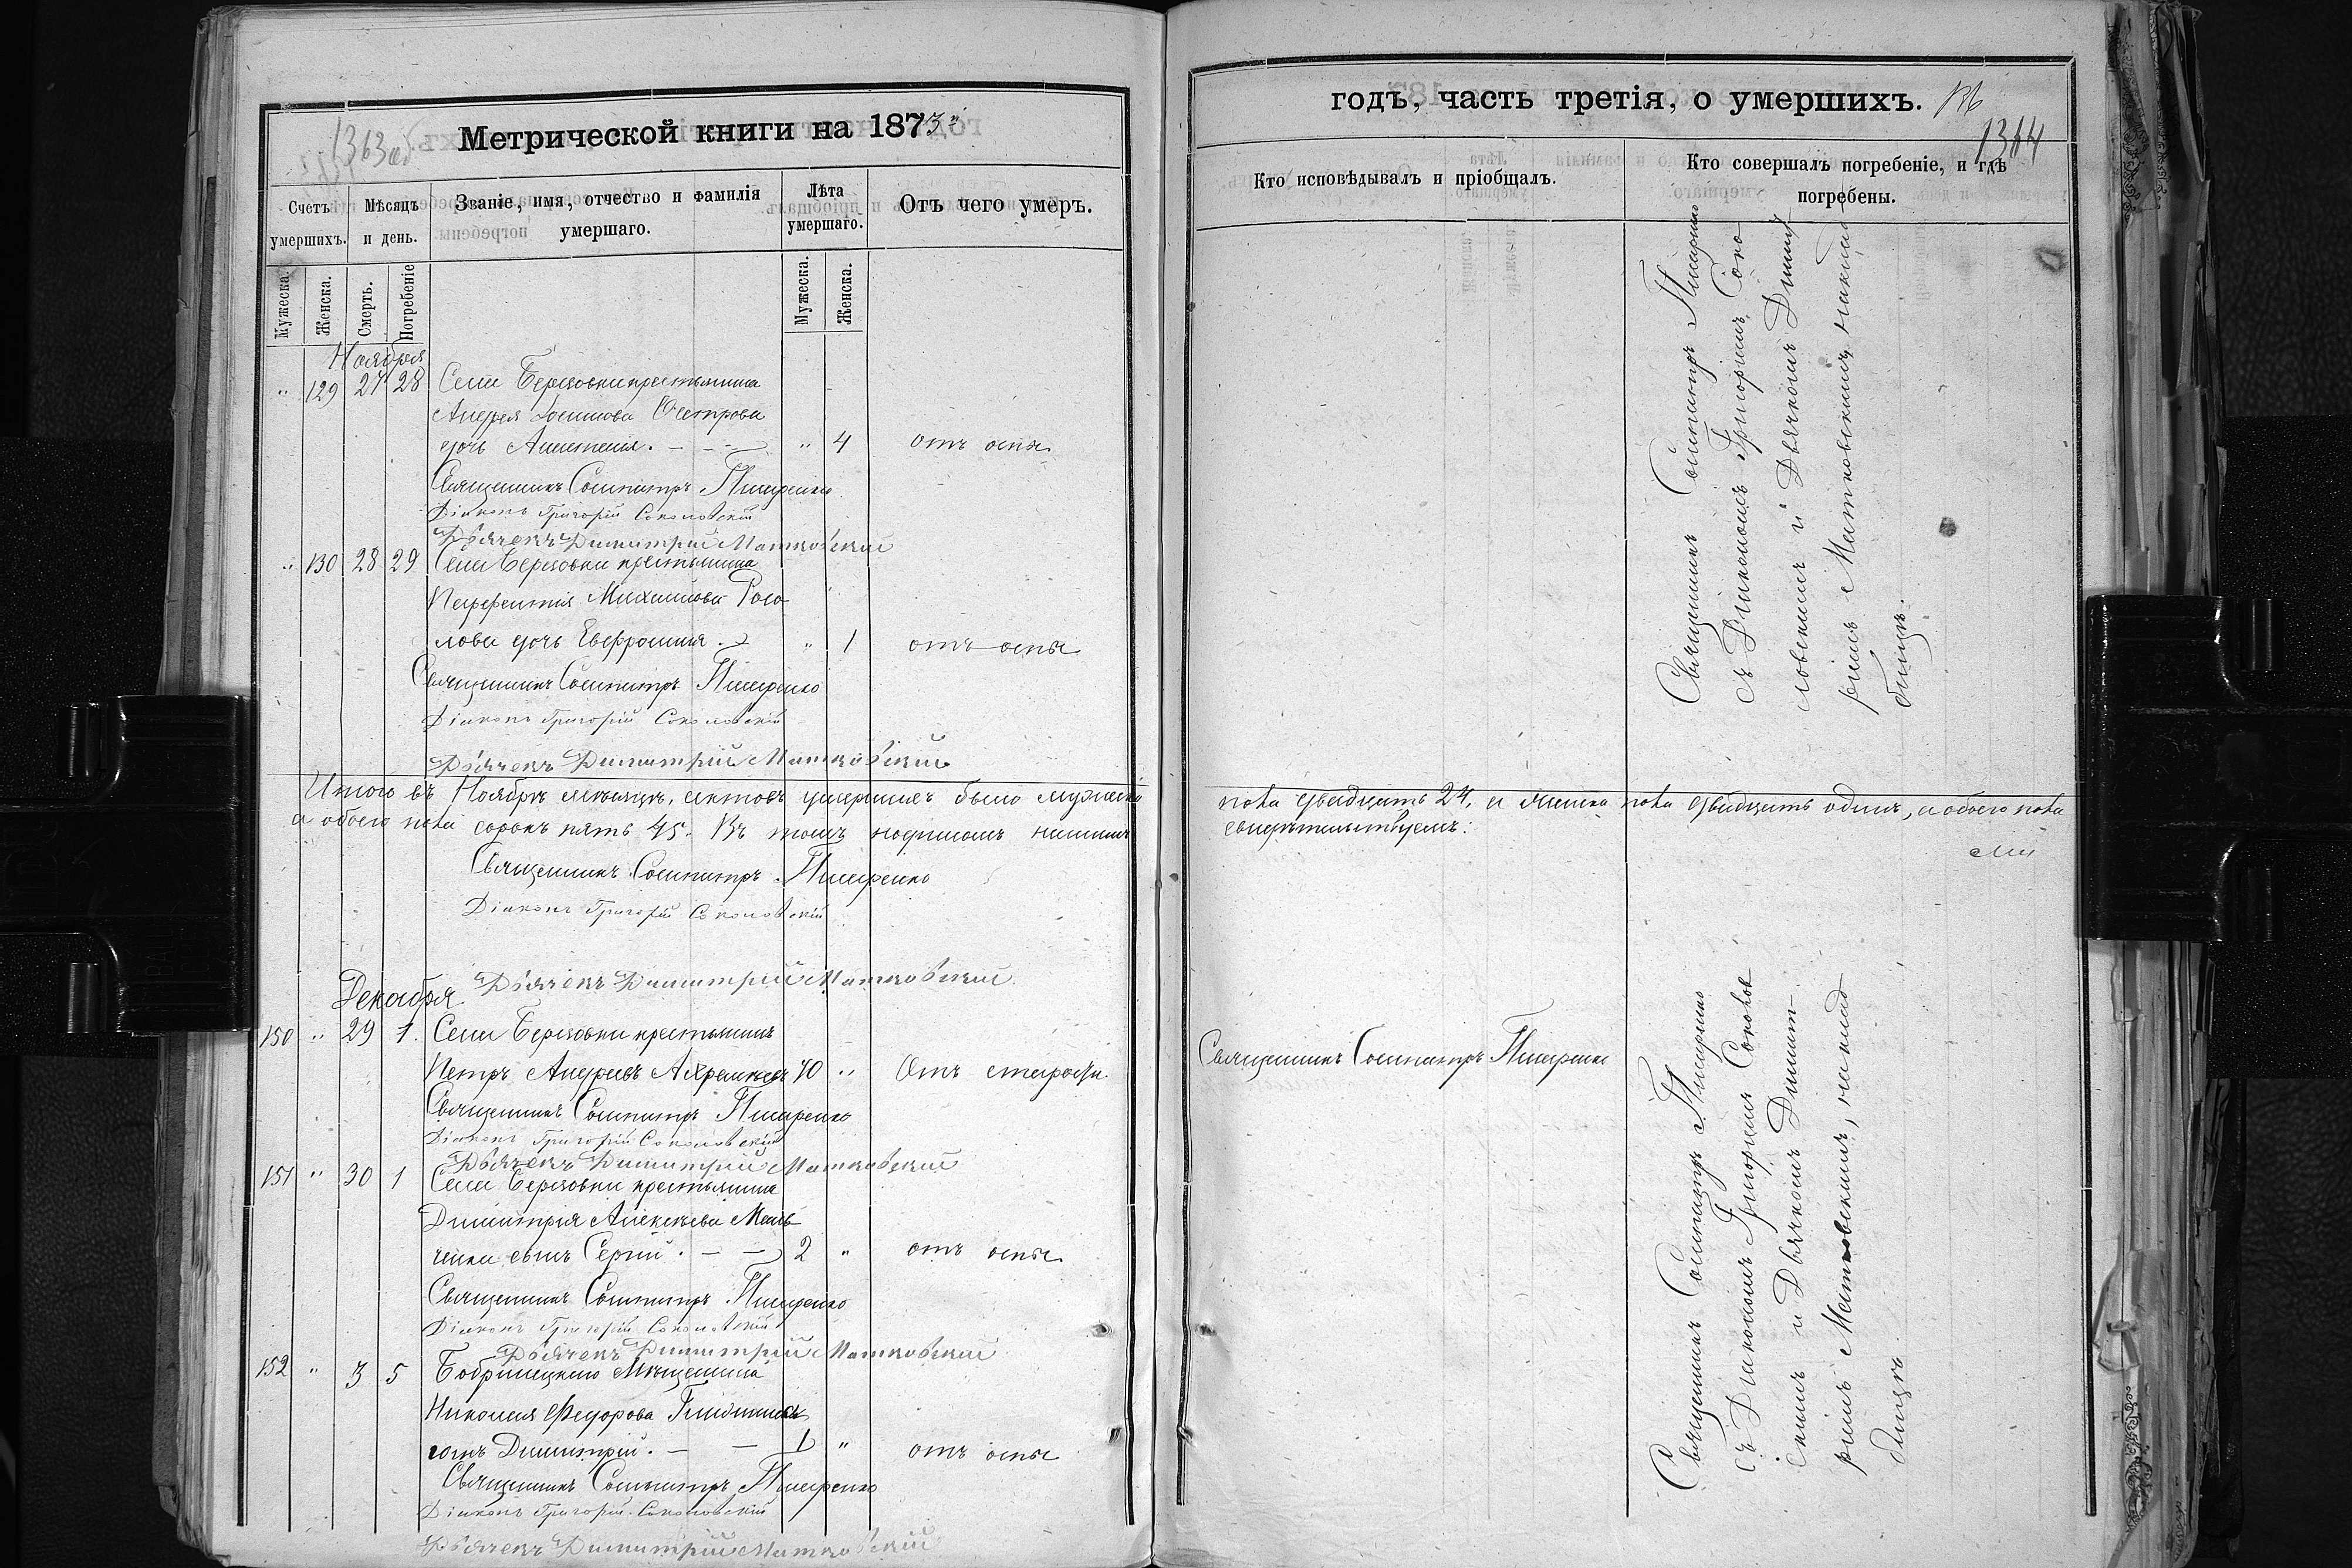 Метрической книги на 1873й
1363 об
Счетъ умершихъ.
Мѣсяцъ и день.
Званіе, имя, отчество и фамилія умершаго.
Лѣта умершаго.
Отъ чего умеръ.
Мужеска.
Женска.
Смерть.
Погребеніе
Мужеска.
Женска.
Ноября
" 129 27 28 Села Березовки крестьянина
Андрея Осипова
дочь Анастасія. — " 4 отъ оспы
Священникъ Сосипатръ Писаренко
Діаконъ Григорій Соколовскій
Дьячекъ Димитрій Матковскій
" 130 28 29 Села Березовки крестьянина
Парфентія Михайлова Рого
лова дочь Евфросинія. " 1 отъ оспы
Священникъ Сосипатръ Писаренко
Діаконъ Григорій Соколовскій
Дьячекъ Димитрій Матковскій
Итого въ Ноябрѣ мѣсяцѣ, актовъ умершихъ было мужеска
а обоего пола сорокъ пять 45. Въ томъ подписомъ нашимъ
Священникъ Сосипатръ Писаренко
Діаконъ Григорій Соколовскій
Дьячекъ Димитрій Матковскій
Декабря
150 " 29 1. Села Березовки крестьянинъ
Петръ Андреевъ 70 " Отъ старости.
Священникъ Сосипатръ Писаренко
Діаконъ Григорій Соколовскій
Дьячекъ Димитрій Матковскій
151 " 30 1 Села Березовки крестьянина
Димитрія Алексѣева Мель
ченка сынъ Сергій. — — 2 " отъ оспы
Священникъ Сосипатръ Писаренко
Діаконъ Григорій Соколовскій
Дьячекъ Димитрій Матковскій
152 " 3 5 Бобринецкаго Мѣщанина
Николая Федорова
сынъ Димитрій. — — 1 " отъ оспы
Священникъ Сосипатръ Писаренко
Діаконъ Григорій Соколовскій
Дьячекъ Димитрій Матковскій
годъ, часть третія, о умершихъ.
136
1364
Кто исповѣдывалъ и пріобщалъ.
Кто совершалъ погребеніе, и гдѣ
погребены.
Священникъ Сосипатръ Писаренко
съ Діакономъ Григоріемъ Соко
ловскимъ и Дьячкомъ Димит
ріемъ Матковскимъ, на клад
бищѣ.
пола двадцать 24, а женска пола двадцать одинъ, а обоего пола
свидѣтельствуемъ:
Священникъ Сосипатръ Писаренко
Священникъ Сосипатръ Писаренко
съ Діакономъ Григоріемъ Соколов
скимъ и Дьячкомъ Димит-
ріемъ Матковскимъ, на клад
бищѣ.